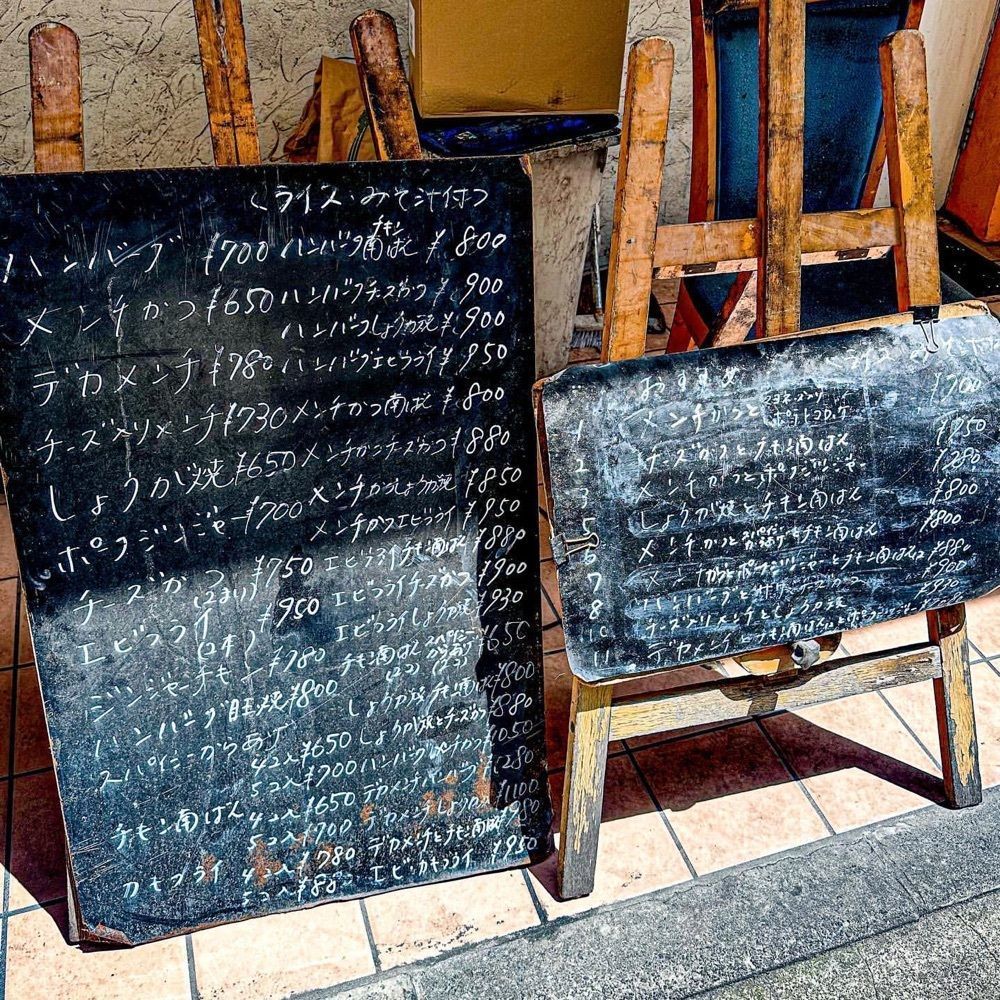 ライス・みそ汁付
ハンバーグ ¥700
メンチかつ ¥650
デカメンチ ¥780
チーズ入りメンチ ¥730
しょうが焼 ¥650
ポークジンジャー ¥700
チーズかつ ¥750
(2コ入)
エビフライ ¥950
(2本)
ジンジャーチキン ¥780
ハンバーグ目玉焼 ¥800
スパイシーからあげ
4コ入 ¥650
5コ入 ¥700
チキン南ばん 4コ入 ¥650
5コ入 ¥700
カキフライ 4コ入 ¥780
5コ入 ¥880
チキン
ハンバーグ南ばん ¥800
ハンバーグチーズかつ ¥900
ハンバーグしょうが焼 ¥900
ハンバーグエビフライ ¥950
メンチかつ南ばん ¥800
メンチかつチーズかつ ¥880
メンチかつしょうが焼 ¥850
メンチかつエビフライ ¥950
エビフライチキン南ばん ¥880
エビフライチーズかつ ¥900
エビフライしょうが焼 ¥930
チキン南ばん スパイシーからあげ ¥650
(2コ) (2コ)
しょうが焼チキン南ばん ¥800
しょうが焼とチーズかつ ¥880
ハンバーグ メンチかつ ¥1050
デカメンチ
デカメンチしょうが ¥1100
デカメンチとチキン南ばん ¥980
エビ・カキフライ ¥950
おすすめ
1 メンチかつと ポテトコロッケ ¥700
2 チーズかつとチキン南ばん
3 メンチかつとポークジンジャー
5 しょうが焼とチキン南ばん ¥800
6 メンチかつと チキン南ばん ¥800
7 メンチかつとポークジンジャーとチキン南ばん ¥880
8 ハンバーグと チーズかつ ¥900
10 チーズ入りメンチとしょうが焼 ¥930
11 デカメンチとチキン南ばんとポークジンジャー